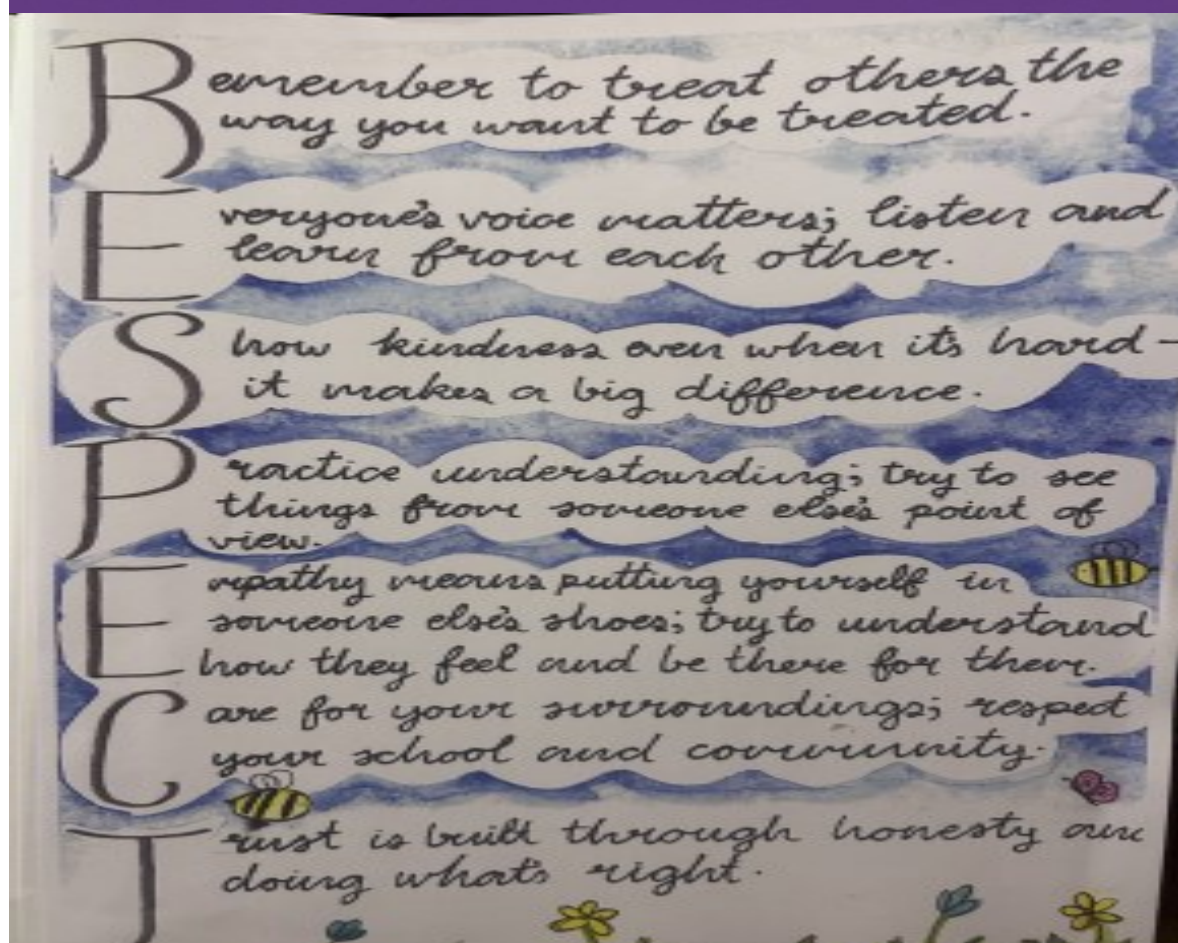 Remember to treat others the
way you want to be treated.
Everyone's voice matters; listen and
learn from each other.
Show kindness even when it's hard-
it makes a big difference.
Practice understanding; try to see
things from someone else's point of
view.
Empathy means putting yourself in
someone else's shoes; try to understand
how they feel and be there for them.
Care for your surroundings; respect
your school and community.
Trust is built through honesty and
doing what's right.